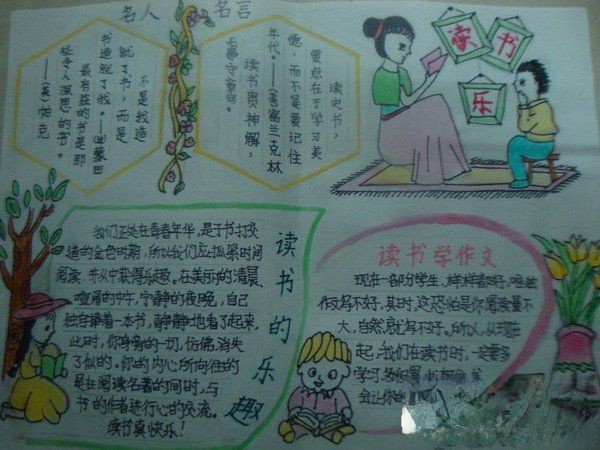 名人 名言
不是我造
就了书，而是
书造就了我。——(法)蒙田
最有益的书是那
些令人深思的书。
——(美)帕克
读史书，
要点在于学习美
德，而不是要记住
年代。——(美)富兰克林
读书贵神解，
无事守章句。
读书乐
读书的乐趣
我们正处在青春年华，是于书打交
道的金色时期，所以我们应抓紧时间
阅读，并从中获得乐趣。在美丽的清晨、
喧闹的中午、宁静的夜晚，自己
独自捧着一本书，静静地看了起来，
此时，你身旁的一切，仿佛消失
了似的。你的内心所向住的
是在阅读名著的同时，与
书的作者进行心的交流。
读书真快乐！
读书学作文
现在一部分学生，样样都好，唯独
作文写不好。其时，这恐怕是你阅读量不
大，自然就写不好。所以，从现在
起，我们在读书时，一定要多
学习
会让你的